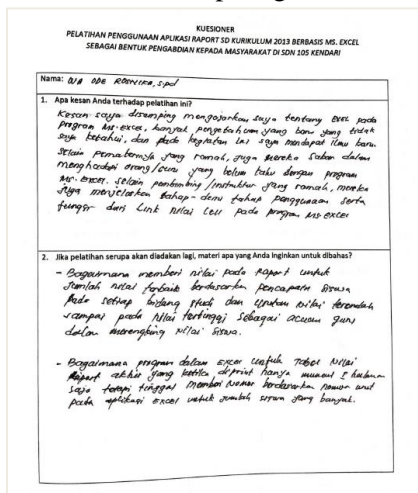 KUESIONER
PELATIHAN PENGGUNAAN APLIKASI RAPORT SD KURIKULUM 2013 BERBASIS MS. EXCEL
SEBAGAI BENTUK PENGABDIAN KEPADA MASYARAKAT DI SDN 105 KENDARI
Nama: WA ODE ROSNIKA, S.pd
1. Apa kesan Anda terhadap pelatihan ini?
Kesan saya disamping mengajarkan saya tentang Exel pada
program Ms. excel, banyak pengetahuan yang baru yang tidak
saya ketahui, dan pada kegiatan ini saya mendapat ilmu baru.
Selain pematerinya yang ramah, juga mereka sabar dalam
menghadapi orang/guru yang belum tahu dengan program
Ms. Excel. selain pembimbing/instruktur yang ramah, mereka
juga menjelaskan tahap-demi tahap penggunaan serta
fungsi dari Link Nilai Cell pada program Ms excel
2. Jika pelatihan serupa akan diadakan lagi, materi apa yang Anda inginkan untuk dibahas?
- Bagaimana memberi nilai pada Raport untuk
Jumlah nilai terbaik berdasarkan pencapaian siswa
pada setiap bidang studi dan urutan nilai terendah
sampai pada nilai tertinggi sebagai acuan guru
dalam merengking nilai siswa.
- Bagaimana program dalam excel untuk Tabel Nilai
Raport akhir yang ketika diprint hanya muncul 1 halaman
saja tetapi tinggal memberi Nomor berdasarkan nomor urut
pada aplikasi excel untuk jumlah siswa yang banyak.